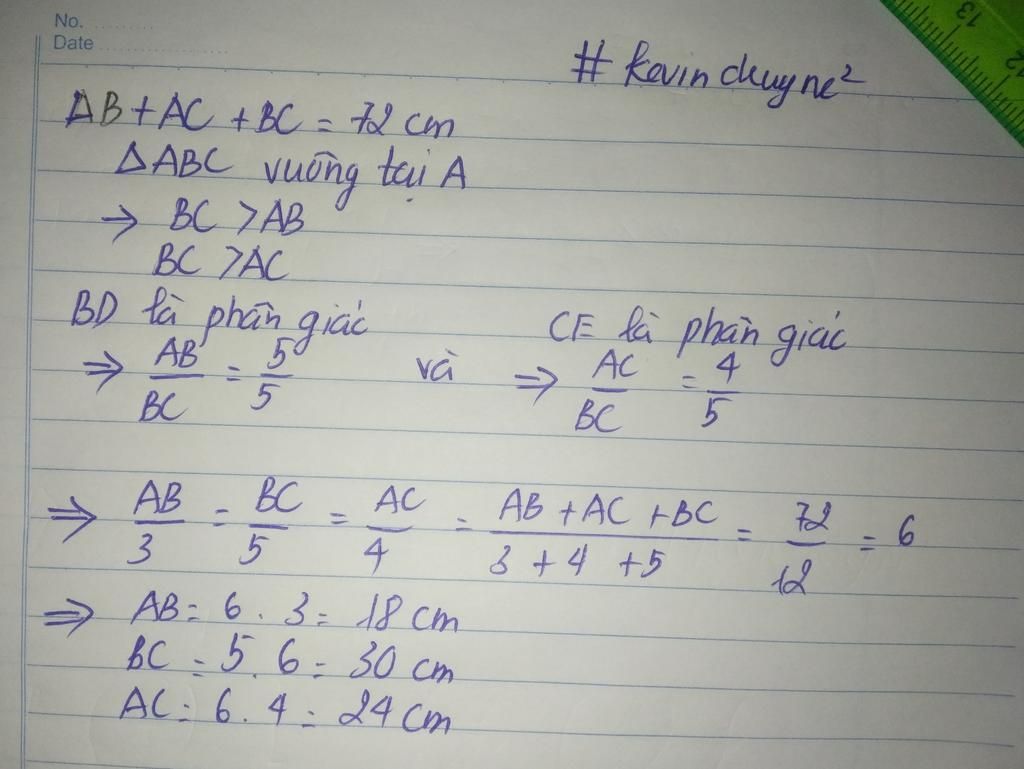 No. ............
Date ........................
# kevinchuync²
AB + AC + BC = 72 cm
ΔABC vuông tại A
⇒ BC > AB
BC > AC
BD là phân giác CE là phân giác
⇒ AB/BC = 5/5 và ⇒ AC/BC = 4/5
⇒ AB/3 = BC/5 = AC/4 = (AB + AC + BC)/(3 + 4 + 5) = 72/12 = 6
⇒ AB = 6 . 3 = 18 cm
BC = 5 . 6 = 30 cm
AC = 6 . 4 = 24 cm
13
12